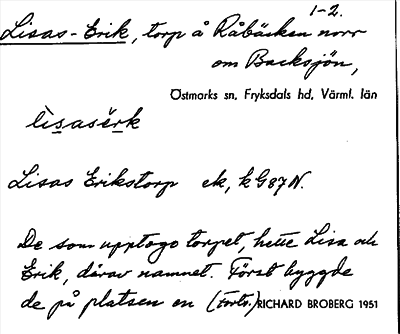 1-2.
Lisas-Erik, torp å Råbäcken norr
om Backsjön,
Östmarks sn, Fryksdals hd, Värml. län
lìsasèrk
Lisas Erikstorp ek, k G 87 N.
De som upptogo torpet, hette Lisa och
Erik, därav namnet. Först byggde
de på platsen en (Forts.) RICHARD BROBERG 1951